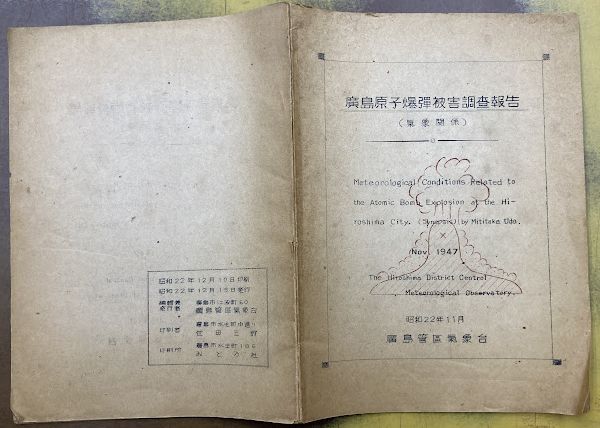 廣島原子爆彈被害調査報告
(氣象關係)
Meteorological Conditions Related to
the Atomic Bomb Explosion at the Hi-
roshima City. (Synopsis) by Mititaka Uda.
×
Nov. 1947.
The Hiroshima District Central
Meteorological Observatory.
昭和22年11月
廣島管區氣象台
昭和22年12月10日印刷
昭和22年12月15日発行
編輯兼
発行者
廣島市江波町60
廣島管區氣象台
印刷者
廣島市水主町中通り
印刷所
廣島市水主町106
みどり社